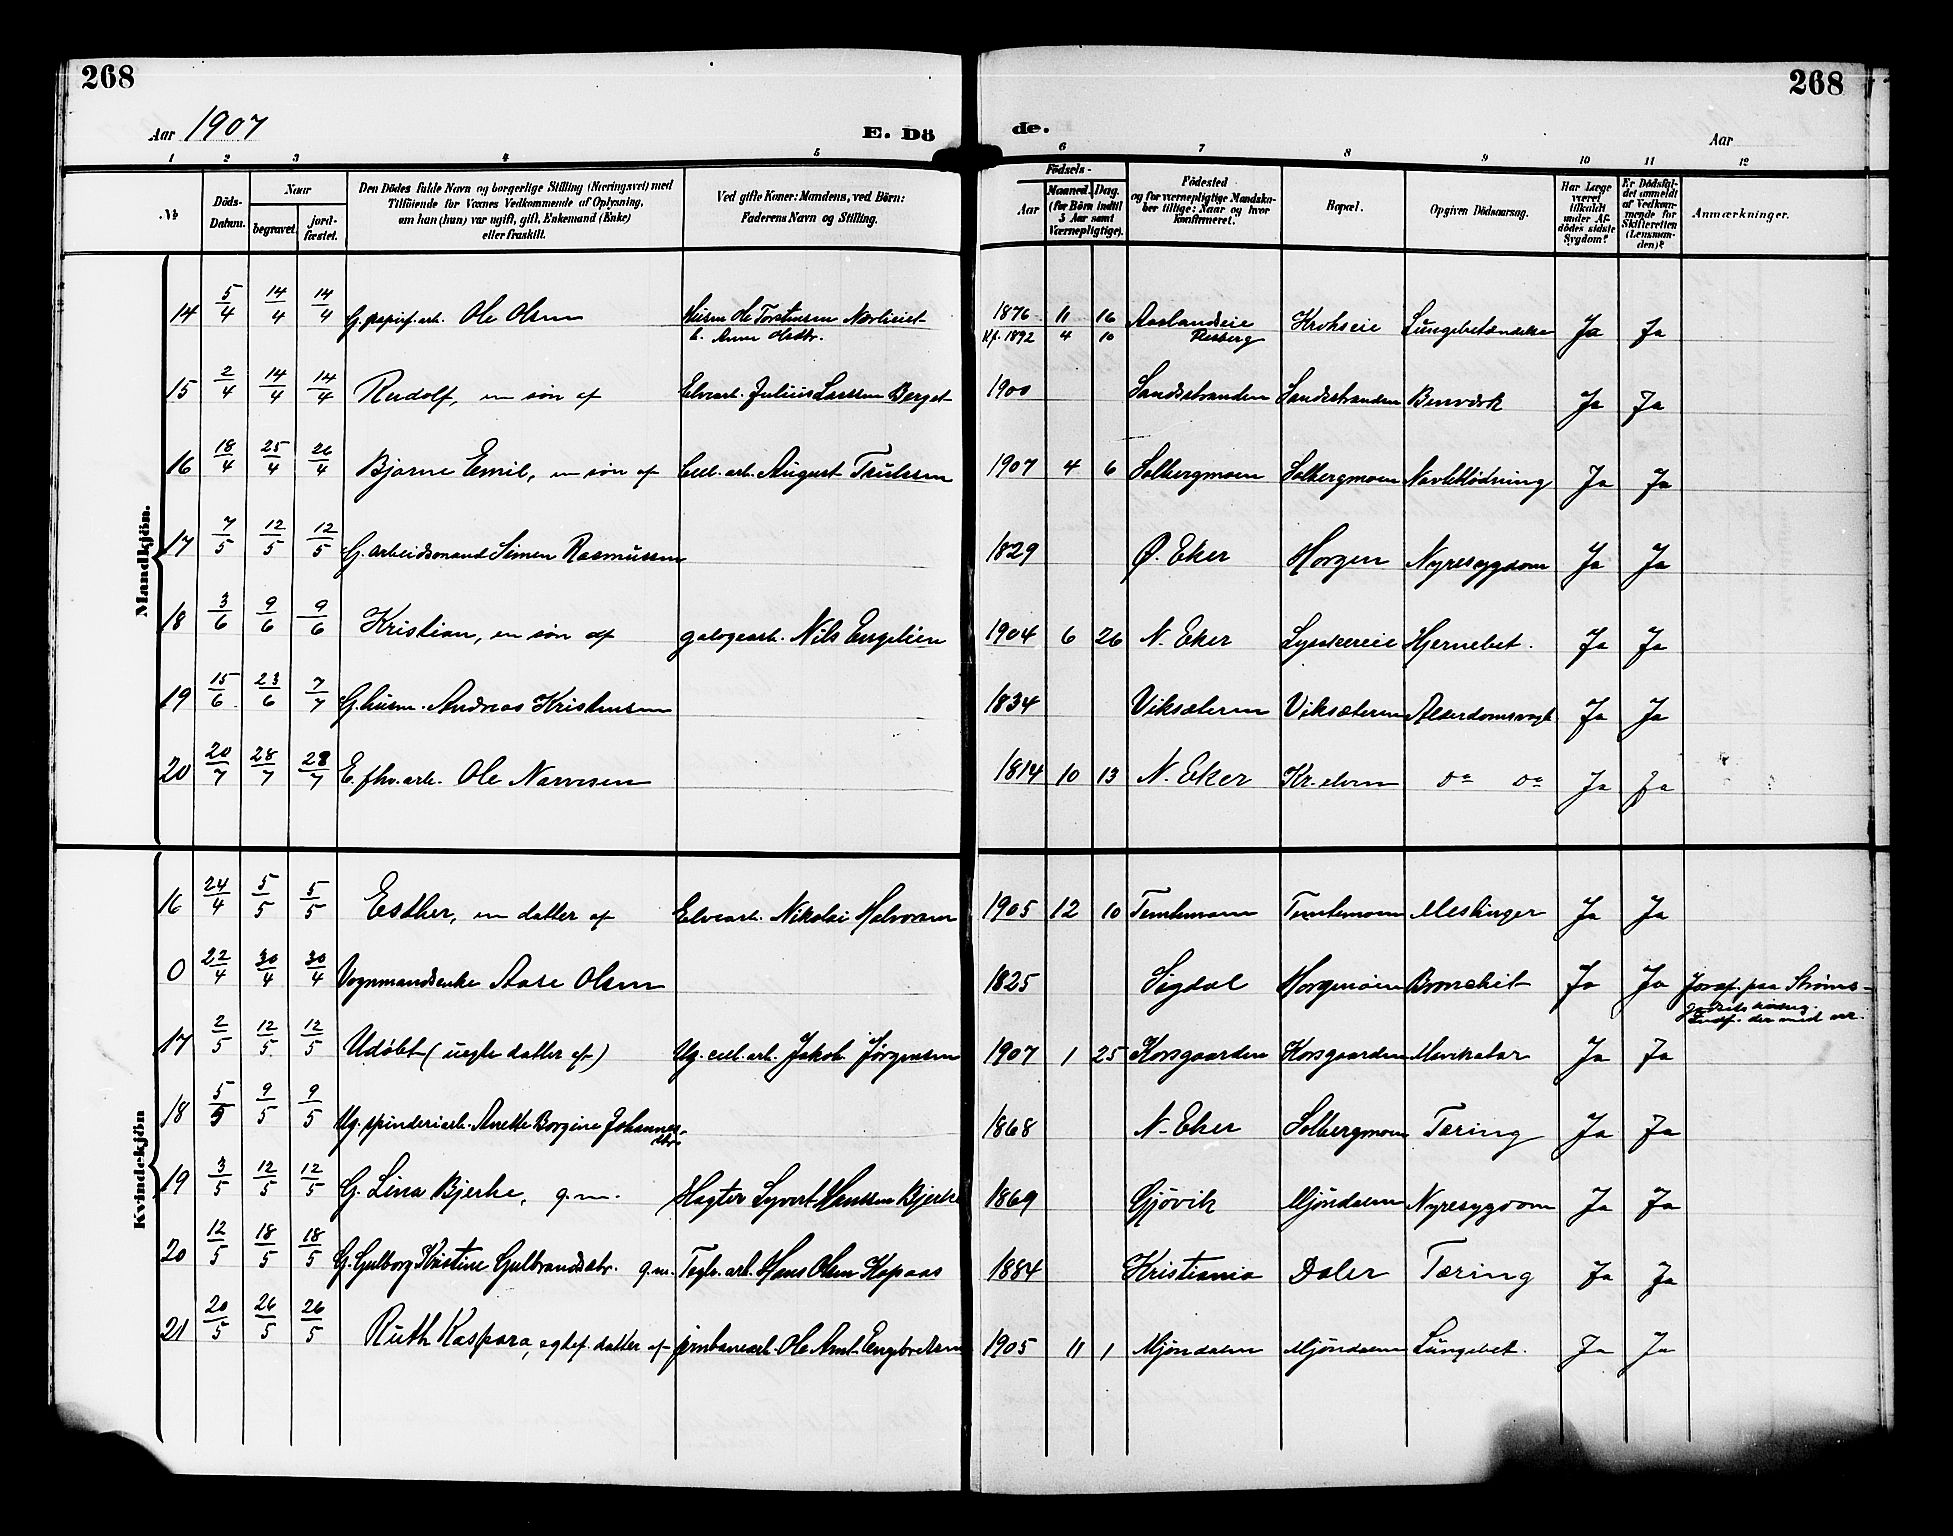 268
268
Aar 1907
E. Dö
de.
Aar
1 2 3 4 5 6 7 8 9 10 11 12
№
Döds-Datum.
Naar
begravet.
jord-fæstet.
Den Dödes fulde Navn og borgerlige Stilling (Næringsvei) med
Tilföiende for Voxnes Vedkommende af Oplysning,
om han (hun) var ugift, gift, Enkemand (Enke)
eller fraskilt.
Ved gifte Koner: Mandens, ved Börn:
Faderens Navn og Stilling.
Födsels-
Aar
Maaned. Dag.
(for Börn indtil
3 Aar samt
Værnepligtige).
Födested
og for værnepligtige Mandska-
ber tillige: Naar og hvor
konfirmeret.
Bopæl.
Opgiven Dödsaarsag.
Har Læge
været
tilkaldt
under Af-
dödes sidste
Sygdom?
Er Dödsfal-
det anmeldt
af Vedkom-
mende for
Skifteretten
(Lensman-
den)?
Anmærkninger.
Mandkjön.
14 5/4 14/4 14/4 G. papirf. arb. Ole Olsen Husm Ole Torstensen 1876 11 16 Aaslandseie Krokseie Lungebetændelse Ja Ja
Anne Olsdtr. Kf. 1892 4 10
15 2/4 14/4 14/4 Rudolf, en søn af Elvearb. Julius Larssen Berget 1900 Sandsstranden Sandsstranden Benværk Ja Ja
16 18/4 25/4 26/4 Bjarne Emil, en søn af Cell. arb. August Trulssen 1907 4 6 Solbergmoen Solbergmoen Navleblødning Ja Ja
17 7/5 12/5 12/5 G. arbeidsmand Simen Rasmussen 1829 Ø. Eker Horgen Nyresygdom Ja Ja
18 3/6 9/6 9/6 Kristian, en søn af galogearb. Nils Engelien 1904 6 26 N. Eker Lysakereie Hjernebet. Ja Ja
19 15/6 23/6 7/7 G. husm. Andreas Kristensen 1834 Viksæteren Viksæteren Alderdomssvagh Ja Ja
20 20/7 28/7 28/7 E. fhv. arb. Ole Narvesen 1814 10 13 N. Eker Kr. elven do do Ja Ja
Kvindekjön
16 24/4 5/5 5/5 Esther, en datter af Elvearb. Nikolai Halvorsen 1905 12 10 Temtemoen Temtemoen Meslinger Ja Ja
0 22/4 30/4 30/4 Vognmandsenke Aase Olsen 1825 Sigdal Horgenmoen Bronchit Ja Ja Jordf. paa Strøms-
godsets
17 2/5 12/5 12/5 Udøbt (uegte datter af) Ug. cell. arb. Jakob Jørgensen 1907 1 25 Korsgaarden Korsgaarden Mavekatar Ja Ja
18 5/5 9/5 9/5 Ug. spinderiarb. Anette Borgine Johannes-
dtr. 1868 N. Eker Solbergmoen Tæring Ja Ja
19 3/5 12/5 12/5 G. Lina Bjerke, g.m. Slagter Syvert Hanssen Bjerke 1869 Gjøvik Mjøndalen Nyresygdom Ja Ja
20 12/5 18/5 18/5 G. Gulborg Kristine Gulbrandsdtr. g.m. Teglv. arb. Hans Olsen Kopaas 1884 Kristiania Daler Tæring Ja Ja
21 20/5 26/5 26/5 Ruth Kaspara, egtef. datter af jernbanearb. Ole Ant. Engebretsen 1905 11 1 Mjøndalen Mjøndalen Lungebet. Ja Ja